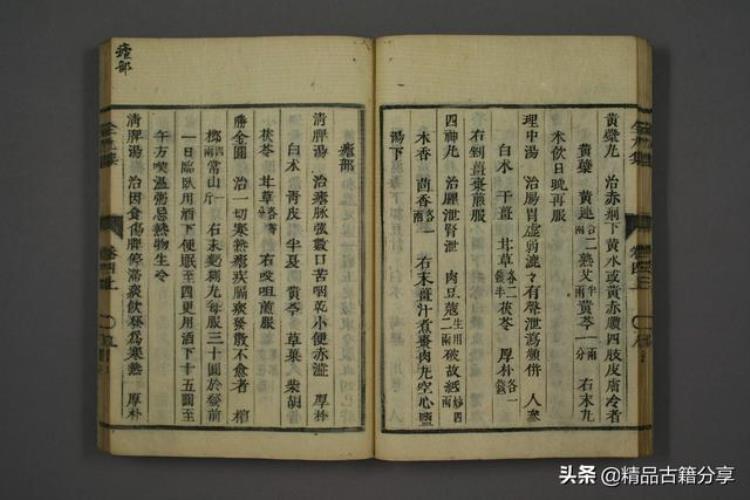 黃蘗丸 治赤痢下黃水或黃赤膿四肢皮膚冷者
黃蘗 黃連各二兩 熟艾半兩 黃芩一兩一分 右末丸
米飲日晚再服
理中湯 治腸胃虛弱漉〻有聲泄瀉頻併 人參
白朮 干薑 甘草各二錢半 茯苓 厚朴各一錢
右剉薑棗煎服
四神丸 治脾泄腎泄 肉豆蔻生用二兩 破故紙炒四兩
木香 茴香各一兩 右末薑汁煮棗肉丸空心鹽
湯下
瘧部
瘧部
清脾湯 治瘧脉弦數口苦咽乾小便赤澁 厚朴
白朮 靑皮 半夏 黃芩 草菓 柴胡
茯苓 甘草各等分 右㕮咀煎服
勝金圓 治一切寒熱瘧疾膈痰發散不愈者 檳
榔四兩 常山一斤 右末麪糊丸每服三十圓於發前
一日臨臥用酒下便眠至四更用酒下十五圓至
午方喫溫粥忌熱物生冷
清脾湯 治因食傷脾停滯痰飲發爲寒熱 厚朴
头条 @精品古籍分享